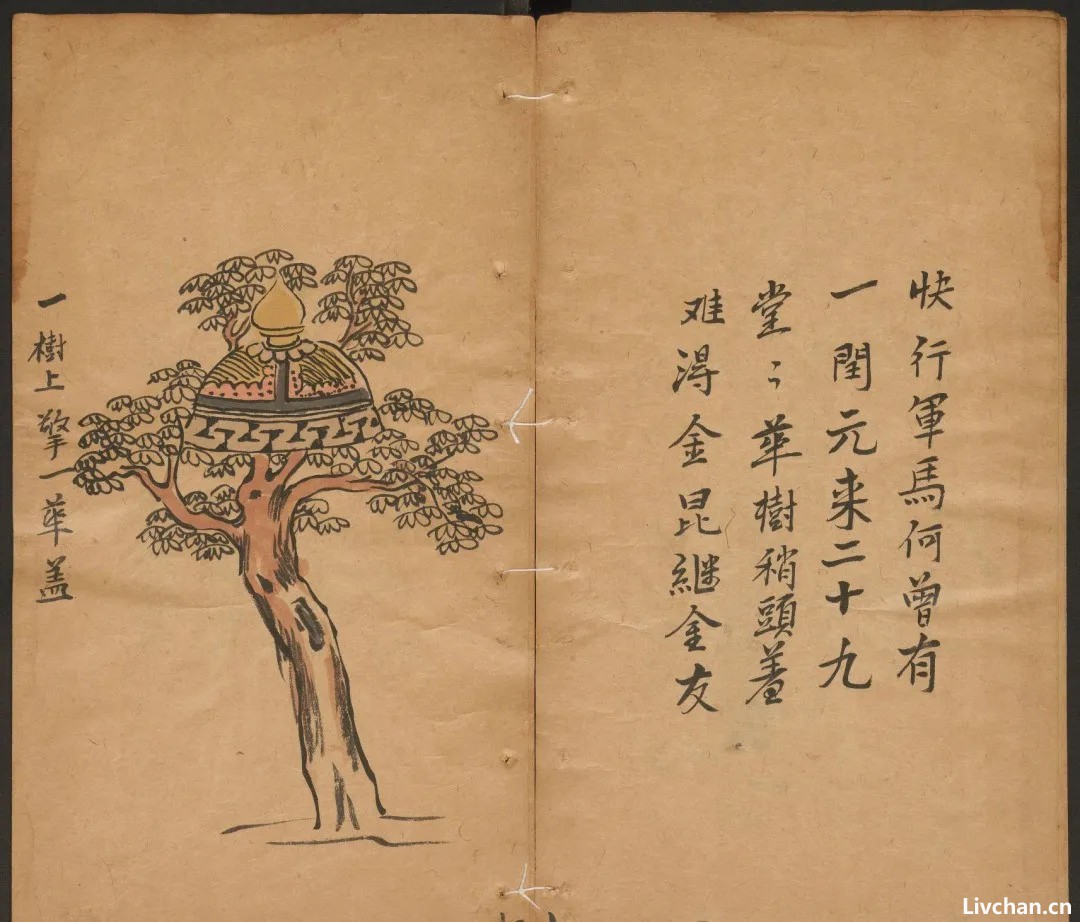 快行軍馬何曾有
一閏元来二十九
堂〻華樹稍頭蓋
难淂金昆継金友
一樹上擎一華盖
Livchan.cn